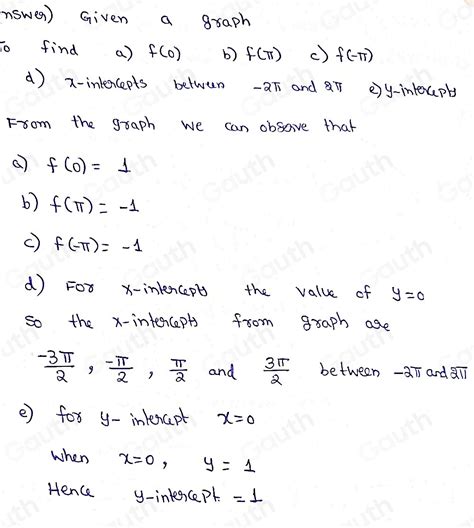 nswer) Given a graph
To find a) f(0) b) f(π) c) f(-π)
d) x-intercepts between -2π and 2π e) y-intercepts
From the graph we can obsove that
a) f(0) = 1
b) f(π) = -1
c) f(-π) = -1
d) For x-intercepts the value of y=0
so the x-intercepts from graph are
-3π/2, -π/2, π/2 and 3π/2 between -2π and 2π
e) for y-intercept x=0
when x=0, y = 1
Hence y-intercept = 1